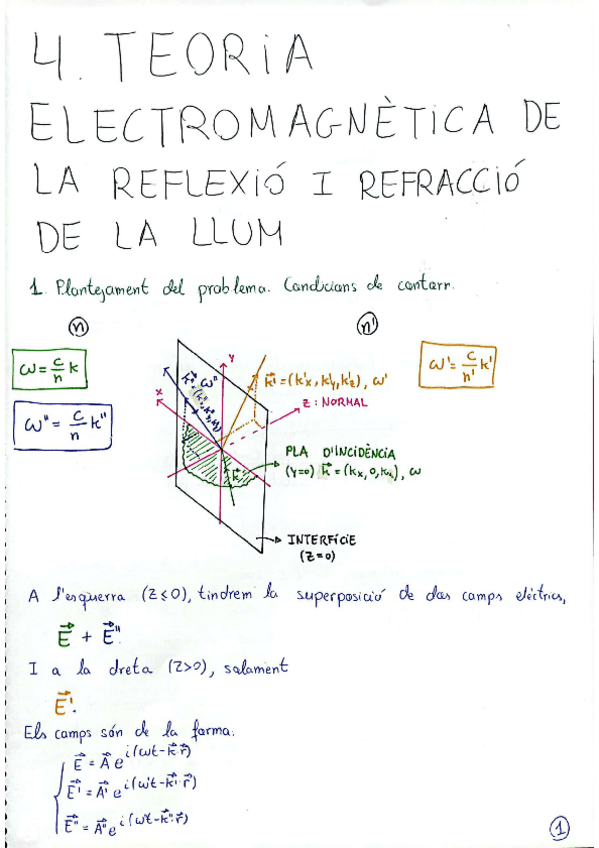 4. TEORIA
ELECTROMAGNÈTICA DE
LA REFLEXIÓ I REFRACCIÓ
DE LA LLUM
1. Plantejament del problema. Condicions de contorn.
n
n'
ω = c/n k
ω'' = c/n k''
ω' = c/n' k'
k⃗'' = (k''x, k''y, k''z) ω''
Y
X
k⃗' = (k'x, k'y, k'z), ω'
Z: NORMAL
PLA D'INCIDÈNCIA
(Y=0) k⃗ = (kx, 0, kz), ω
k⃗
INTERFÍCIE
(Z=0)
A l'esquerra (Z≤0), tindrem la superposició de dos camps elèctrics,
E⃗ + E⃗''.
I a la dreta (Z>0), solament
E⃗'.
Els camps són de la forma:
E⃗ = A⃗ e^i(ωt-k⃗·r⃗)
E⃗' = A⃗' e^i(ω't-k⃗'·r⃗)
E⃗'' = A⃗'' e^i(ω''t-k⃗''·r⃗)
1